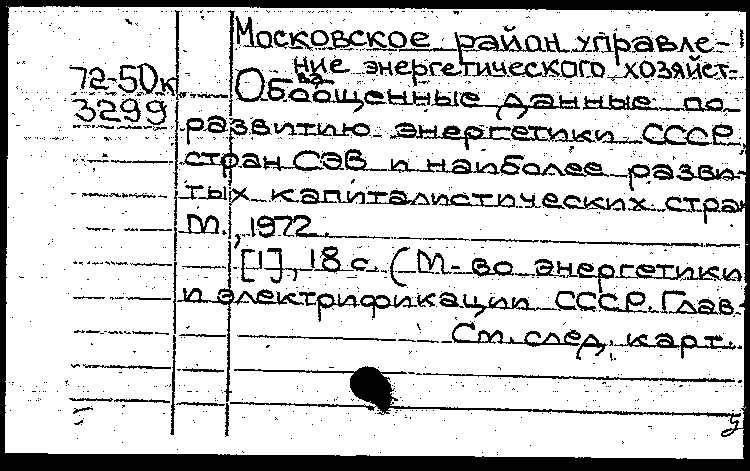 Московское район управле-
ние энергетического хозяйст-
ва
72-50к
3299
Обобщенные данные по
развитию энергетики СССР,
стран СЭВ и наиболее разви-
тых капиталистических стран
М., 1972.
[1], 18 с. (М-во энергетики
и электрификации СССР. Глав-
См. след. карт.